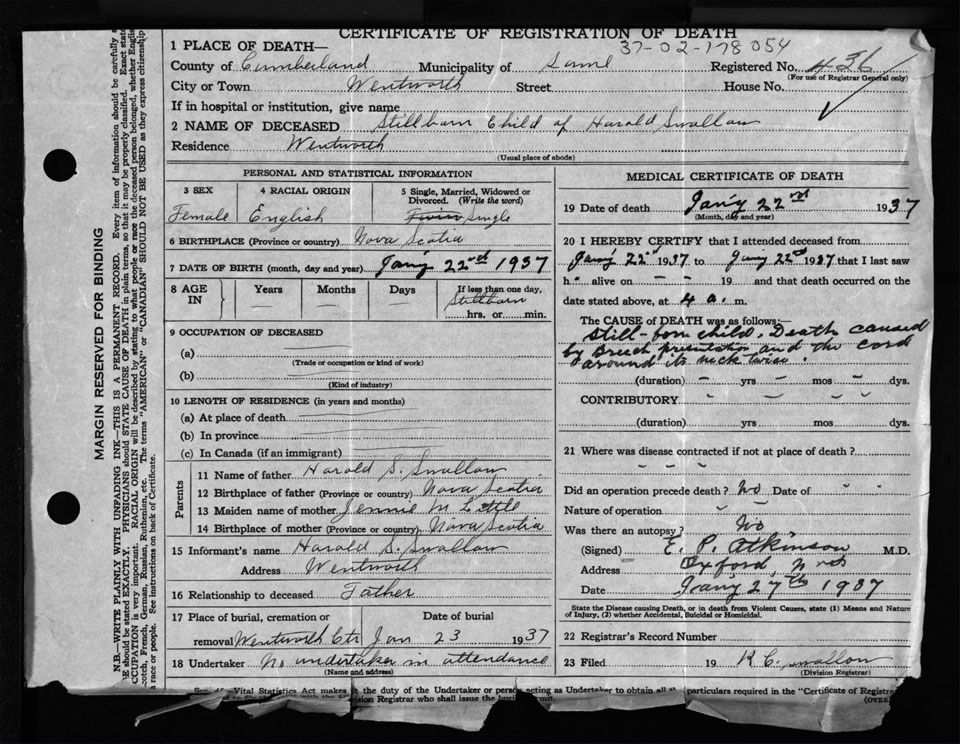 CERTIFICATE OF REGISTRATION OF DEATH
37-02-178054
1 PLACE OF DEATH—
County of Cumberland Municipality of Same Registered No. 436
(For use of Registrar General only)
City or Town Wentworth Street House No.
If in hospital or institution, give name
2 NAME OF DECEASED Stillborn Child of Harold Swallow
Residence Wentworth
(Usual place of abode)
PERSONAL AND STATISTICAL INFORMATION
3 SEX 4 RACIAL ORIGIN 5 Single, Married, Widowed or Divorced. (Write the word)
Female English Single
6 BIRTHPLACE (Province or country) Nova Scotia
7 DATE OF BIRTH (month, day and year) Jan'y 22nd 1937
8 AGE IN Years Months Days If less than one day,
Stillborn
hrs. or min.
9 OCCUPATION OF DECEASED
(a)
(Trade or occupation or kind of work)
(b)
(Kind of industry)
10 LENGTH OF RESIDENCE (in years and months)
(a) At place of death
(b) In province
(c) In Canada (if an immigrant)
Parents
11 Name of father Harold S. Swallow
12 Birthplace of father (Province or country) Nova Scotia
13 Maiden name of mother Jennie M Little
14 Birthplace of mother (Province or country) Nova Scotia
15 Informant's name Harold S. Swallow
Address Wentworth
16 Relationship to deceased Father
17 Place of burial, cremation or Date of burial
removal Wentworth Ctr Jan 23 1937
18 Undertaker No undertaker in attendance
(Name and address)
MEDICAL CERTIFICATE OF DEATH
19 Date of death Jan'y 22nd 1937
(Month, day and year)
20 I HEREBY CERTIFY that I attended deceased from
Jan'y 22nd 1937 to Jan'y 22nd 1937 that I last saw
h alive on 19 and that death occurred on the
date stated above, at 4 a. m.
The CAUSE of DEATH was as follows:—
Still-born child. Death caused
by Breech presentation and the cord
around its neck twice.
(duration) – yrs – mos – dys.
CONTRIBUTORY
(duration) yrs mos dys.
21 Where was disease contracted if not at place of death?
– – –
Did an operation precede death? No Date of
Nature of operation
Was there an autopsy? No
(Signed) E. P. Atkinson M.D.
Address Oxford, N.S.
Date Jany 27th 1937
State the Disease causing Death, or in death from Violent Causes, state (1) Means and Nature
of Injury, (2) whether Accidental, Suicidal or Homicidal.
22 Registrar's Record Number
23 Filed 19 K C Swallow
(Division Registrar)
Vital Statistics Act makes the duty of the Undertaker or person acting as Undertaker to obtain all particulars required in the "Certificate of
Division Registrar who shall issue the
(OVER)
MARGIN RESERVED FOR BINDING
N.B.—WRITE PLAINLY WITH UNFADING INK—THIS IS A PERMANENT RECORD. Every item of information should be carefully
should be stated EXACTLY. PHYSICIANS should STATE CAUSE OF DEATH in plain terms, so that it may be properly classified. Exact
OCCUPATION is very important. RACIAL ORIGIN will be described by stating to what people or race the deceased person belonged, whether
Scotch, French, German, Russian, Ruthenian, etc. The terms "AMERICAN" or "CANADIAN" SHOULD NOT BE USED as they express citizenship
a race or people. See instructions on back of Certificate.